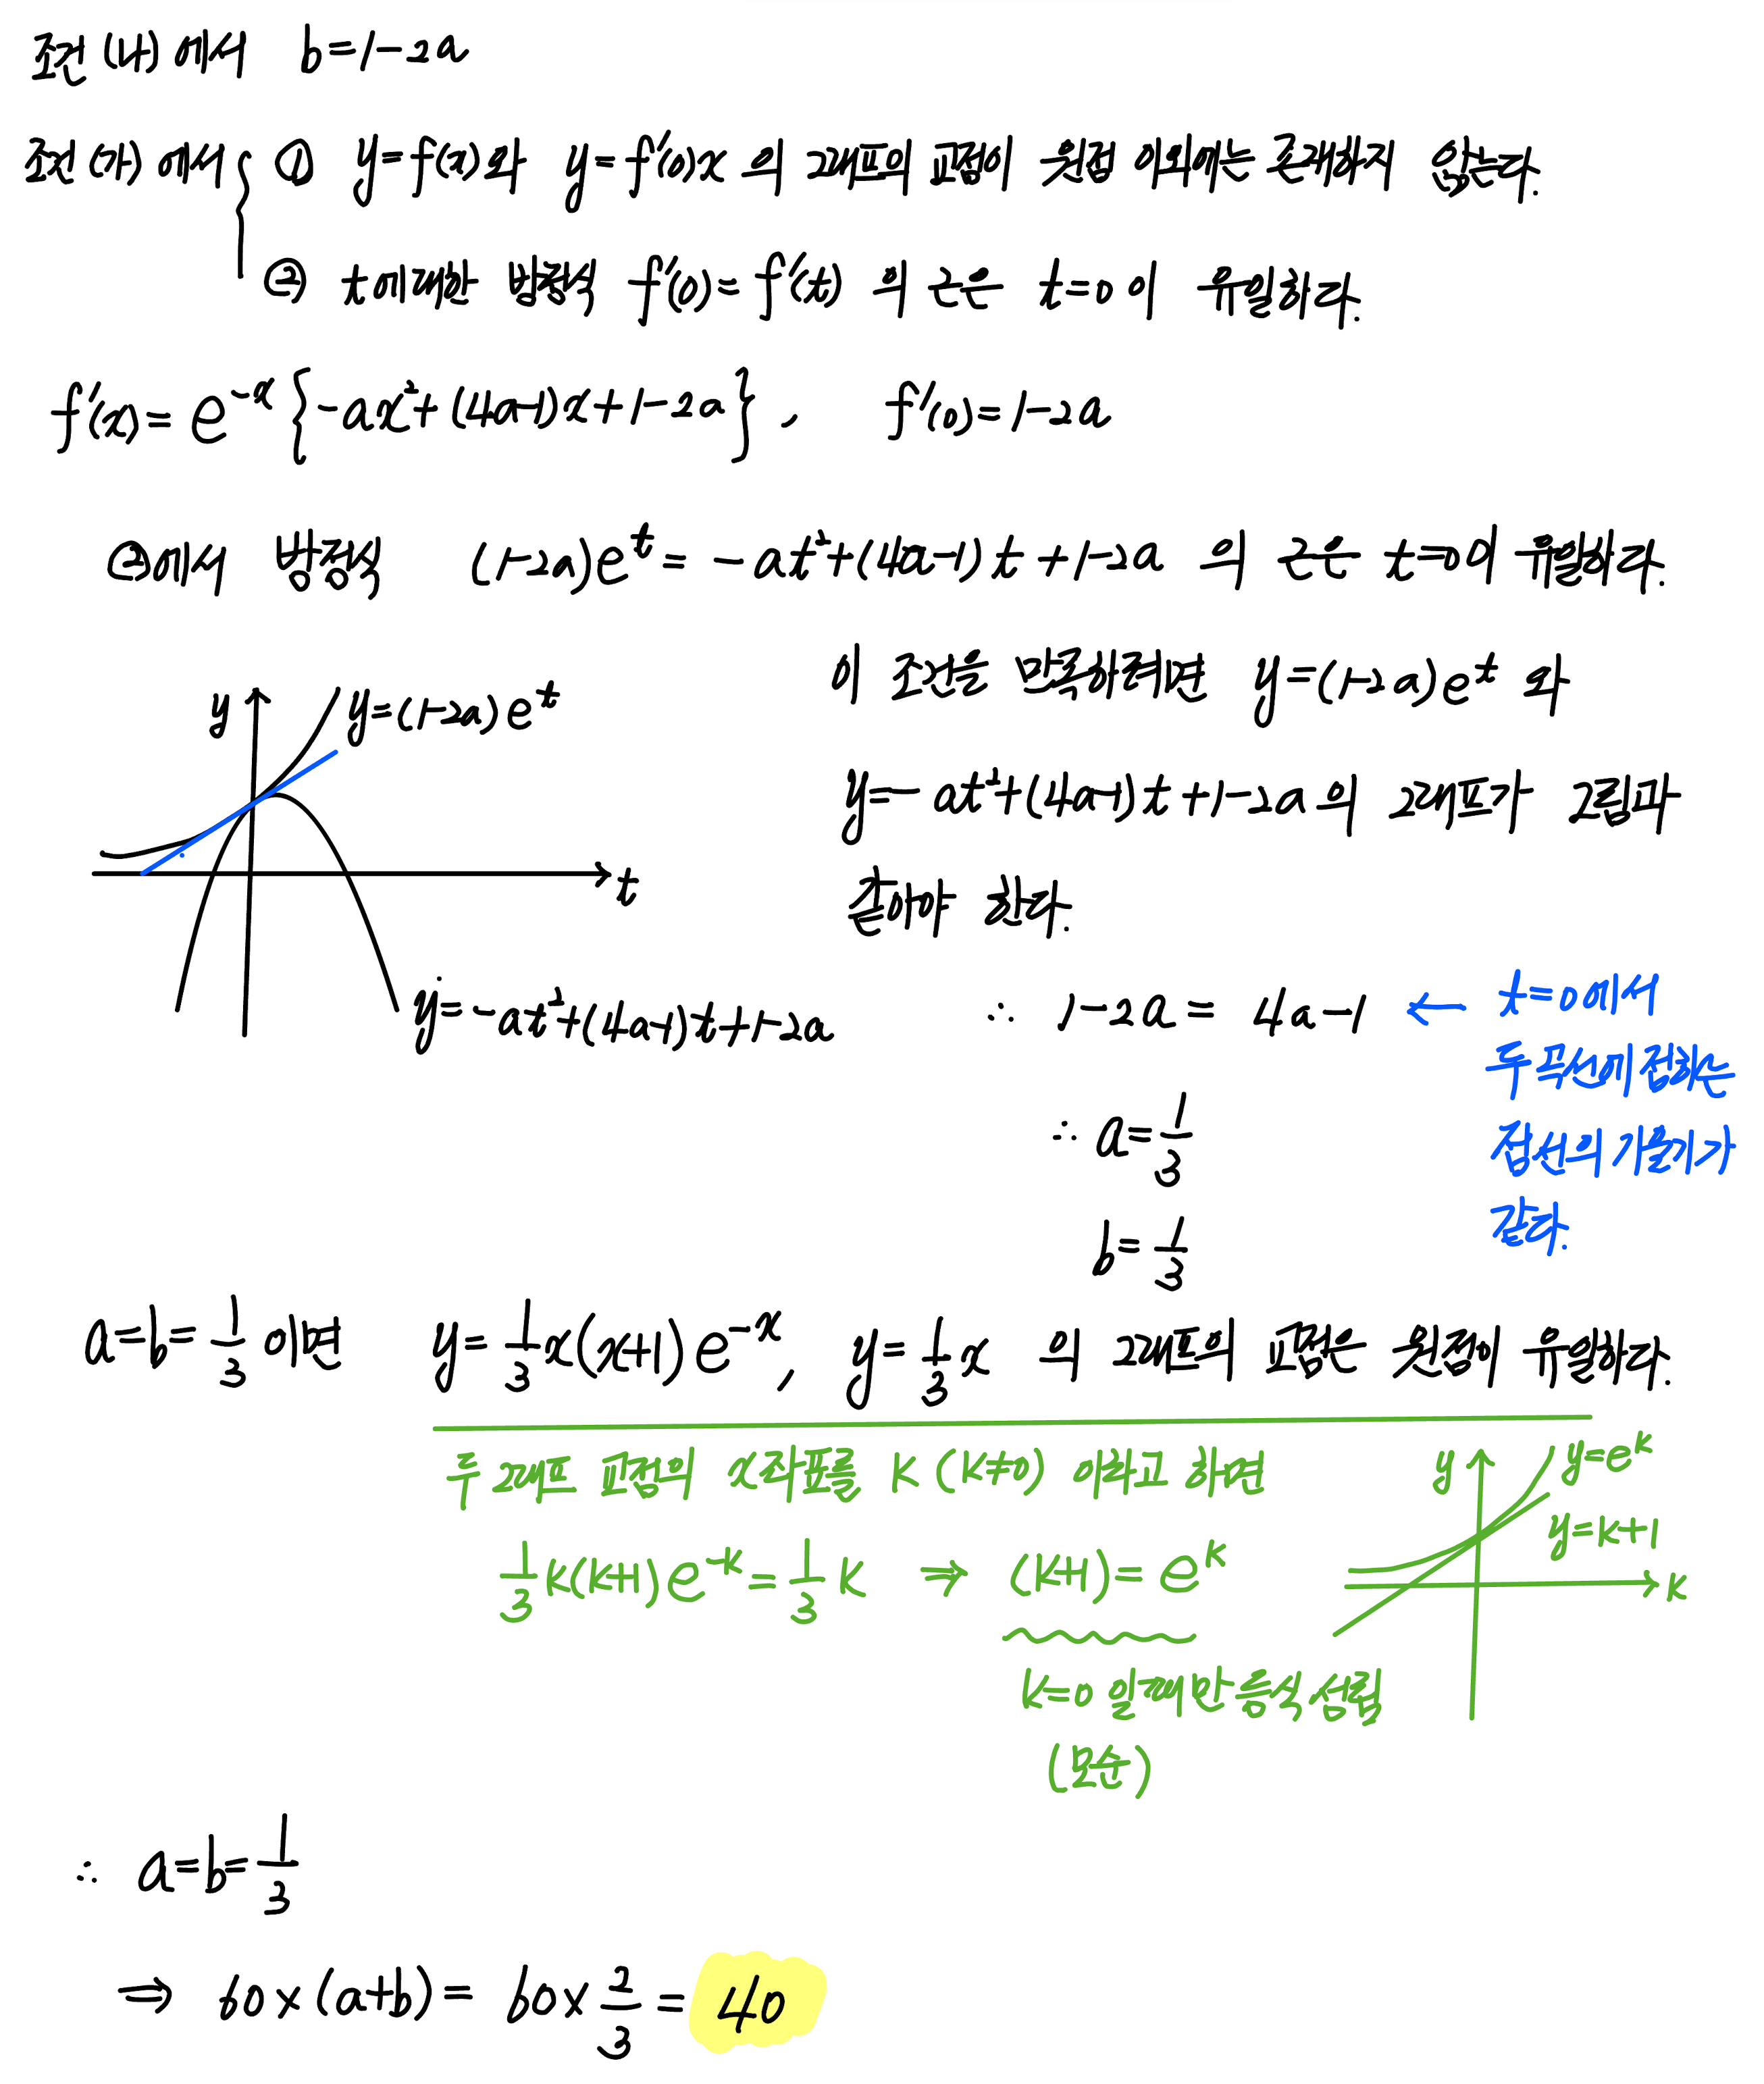 조건 (나) 에서 b=1-2a
조건 (가) 에서 { ① y=f(x)와 y=f'(0)x 의 그래프의 교점이 원점 이외에는 존재하지 않는다.
② t에 대한 방정식 f'(0)=f'(t) 의 근은 t=0 이 유일하다.
f'(x)= e^{-x} { -ax²+(4a-1)x+1-2a }, f'(0)=1-2a
②에서 방정식 (1-2a)e^t = -at²+(4a-1)t+1-2a 의 근은 t=0이 유일하다.
이 조건을 만족하려면 y=(1-2a)e^t 와
y=-at²+(4a-1)t+1-2a 의 그래프가 그림과
같아야 한다.
y
y=(1-2a)e^t
t
y=-at²+(4a-1)t+1-2a
∴ 1-2a = 4a-1 ← t=0에서
두 곡선에 접하는
접선의 기울기가
같다.
∴ a=1/3
b=1/3
a=b=1/3 이면 y=1/3x(x+1)e^{-x}, y=1/3x 의 그래프의 교점은 원점이 유일하다.
두 그래프 교점의 x좌표를 k (k≠0) 이라고 하면
1/3k(k+1)e^{-k}=1/3k ⇒ (k+1)=e^k
k=0 일때만 등식 성립
(모순)
y
y=e^k
y=k+1
k
∴ a=b=1/3
⇒ 60×(a+b)= 60×2/3 = 40